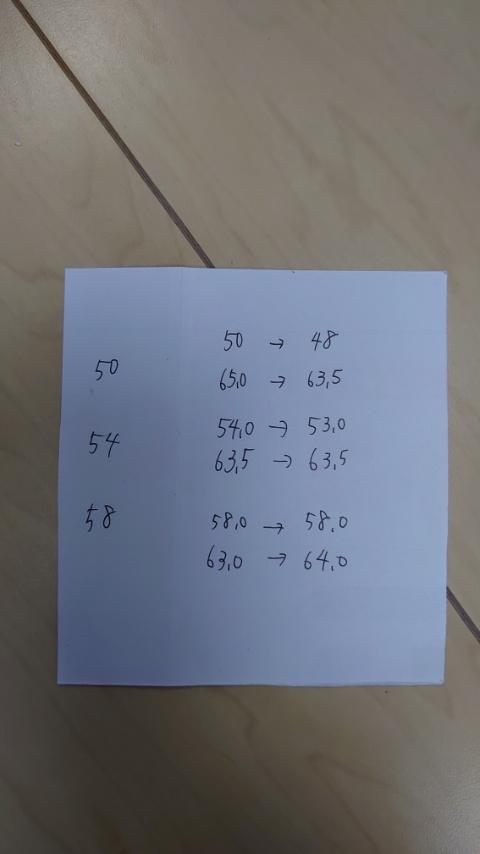 50 → 48
50
65,0 → 63,5
54,0 → 53,0
54
63,5 → 63,5
58
58,0 → 58,0
63,0 → 64,0